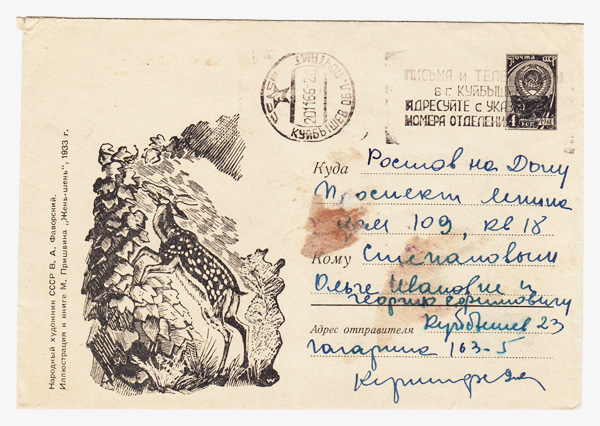 Народный художник СССР В. А. Фаворский.
Иллюстрация к книге М. Пришвина „Жень-шень", 1933 г.
КУЙБЫШЕВ ОБЛ. ПОЧТАМТ
СССР
201166-2
ПИСЬМА И ТЕЛЕ
В Г. КУЙБЫШ
АДРЕСУЙТЕ С УКАЗ
НОМЕРА ОТДЕЛЕНИ
ПОЧТА СССР
4 КОП
Куда Ростов на Дону
Проспект Ленина
дом 109, кв 18
Кому Степановым
Ольге Ивановне и
Георгию Ефимовичу
Адрес отправителя Куйбышев 23
Гагарина 163-5